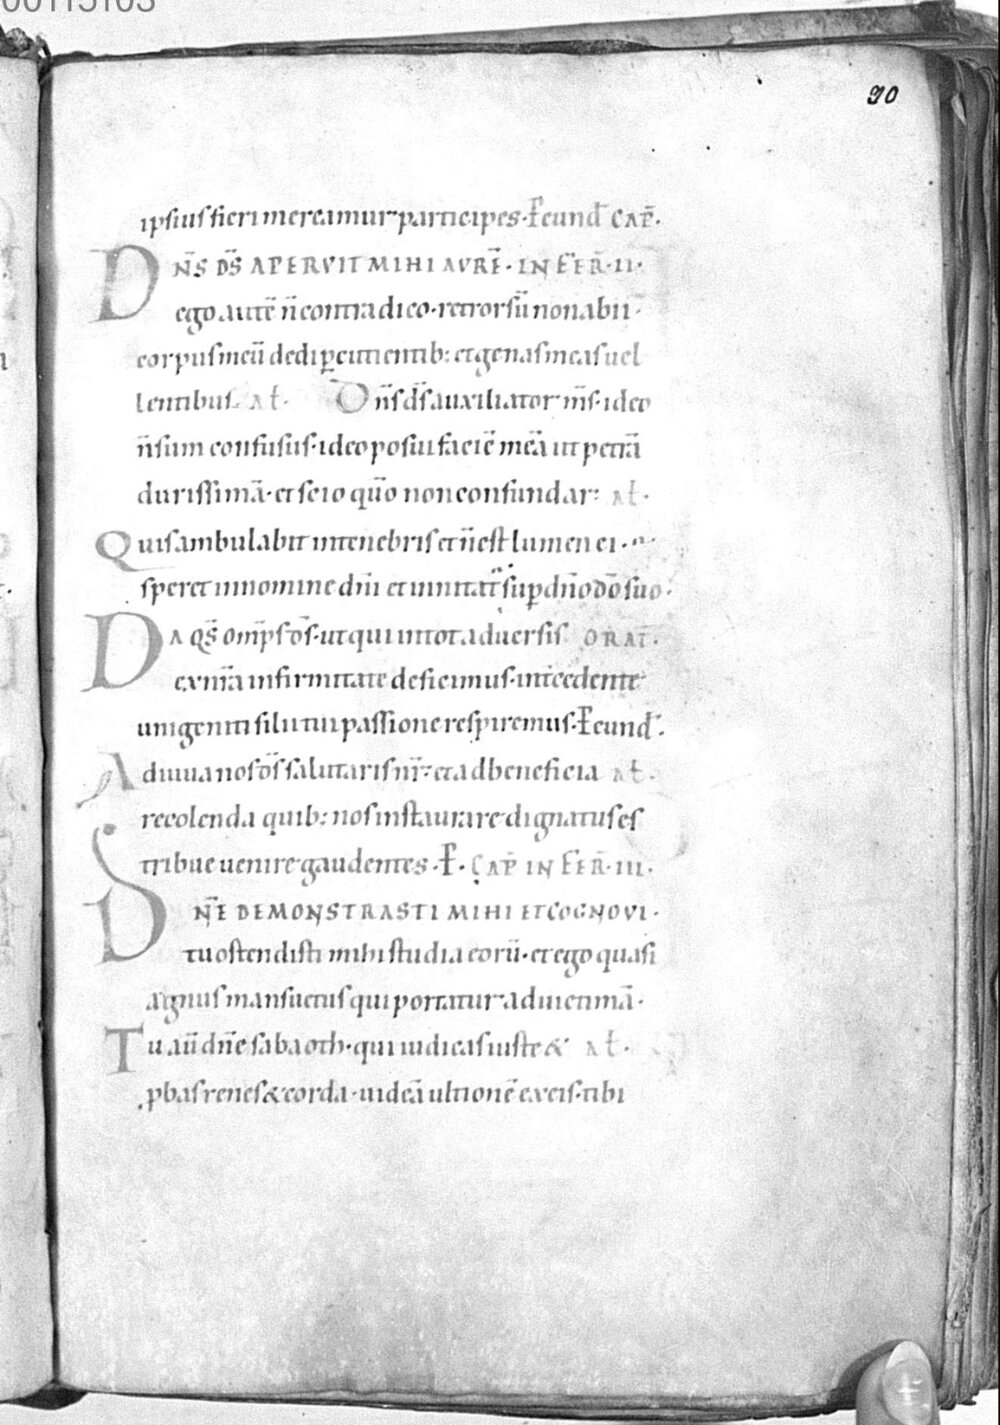 90
ipsius fieri mereamur participes · P̄ eund̄ CAP̄ ·
DN̄S DS̄ APERVIT MIHI AVRĒ · IN FER̄ · II ·
ego autē n̄ contradico · retrorsū non abii ·
corpus meū dedi p̱cutientib: et genas meas uel
lentibus. AL̄ · Dn̄s ds̄ auxiliator m̄s · ideo
n̄ sum confusus · ideo posui faciē meā ut petrā
durissimā · et scio qūo non confundar: AL̄ ·
Quis ambulabit in tenebris et n̄ est lumen ei ·
speret in nomine dn̄i et innitat̄ sup̱ dn̄o dō suo ·
DA QS̄ omp̄s ds̄ · ut qui in tot aduersis ORAT̄ ·
ex nr̄a infirmitate deficimus · intcedente
unigeniti filii tui passione respiremus · P̄ eund̄ ·
Adiuua nos ds̄ salutaris nr̄ · et ad beneficia AL̄ ·
recolenda quib: nos instaurare dignatus es
tribue uenire gaudentes · P̄ · CAP̄ IN FER̄ · III ·
DN̄E DEMONSTRASTI MIHI ET COGNOVI ·
tu ostendisti mihi studia eorū · et ego quasi
agnus mansuetus qui portatur ad uictimā ·
Tu aū dn̄e sabaoth · qui iudicas iuste & AL̄ ·
p̱bas renes & corda · uideā ultionē ex eis · tibi